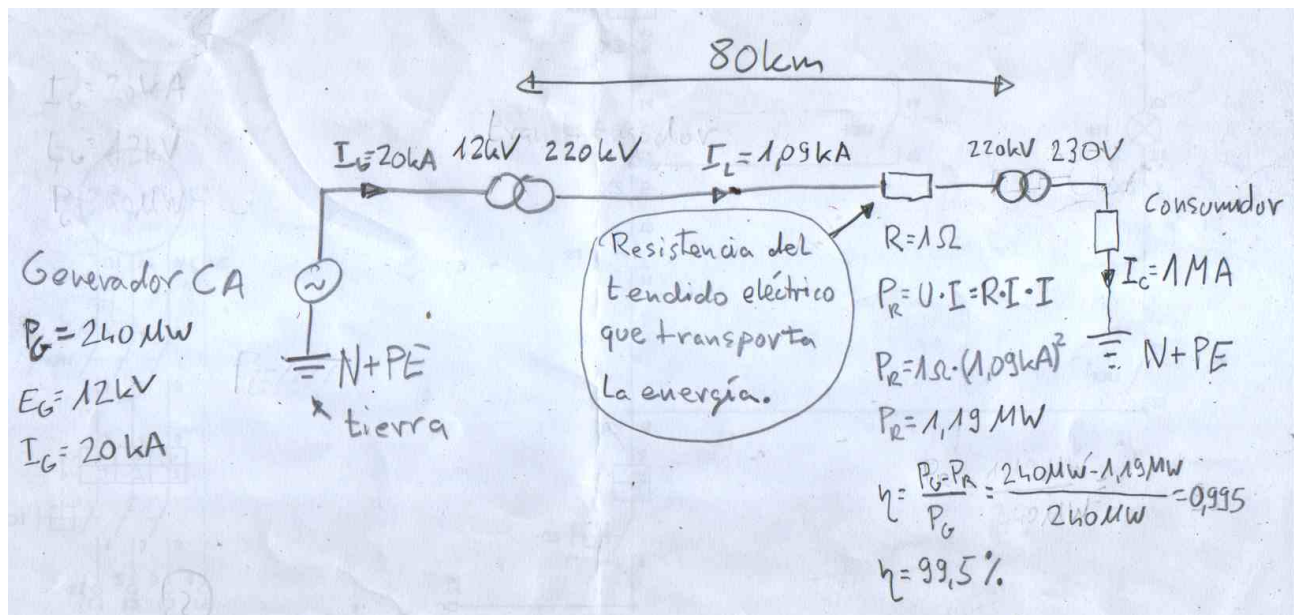 80km
I_G=20kA 12kV 220kV I_L=1,09kA 220kV 230V
Consumidor
Generador CA
P_G=240MW
E_G=12kV
I_G=20kA
N+PE
tierra
Resistencia del
tendido eléctrico
que transporta
La energía.
R=1Ω
P_R=U·I=R·I·I
P_R=1Ω·(1,09kA)²
P_R=1,19MW
η=(P_G-P_R)/P_G=(240MW-1,19MW)/240MW=0,995
η=99,5%
I_C=1MA
N+PE